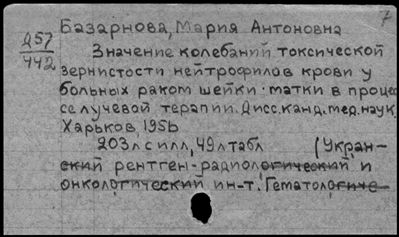 7
Базарнова, Мария Антоновна
257
442
Значение колебаний токсической
зернистости нейтрофилов крови у
больных раком шейки матки в процес
се лучевой терапии. Дисс. канд. мед. наук.
Харьков, 1956
203л с илл, 49л табл (Укран-
ский рентген-радиологический и
онкологический ин-т. Гематологиче-